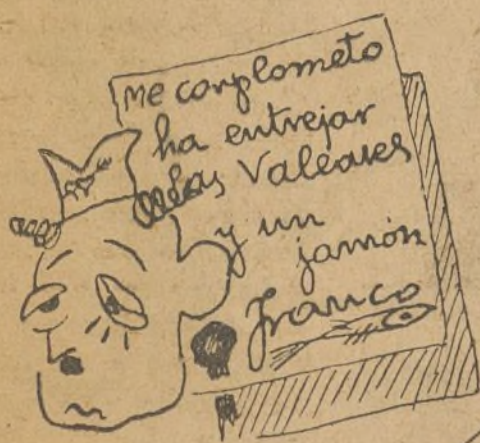 Me complometo
ha entrejar
las Valeares
y un
jamón
Franco